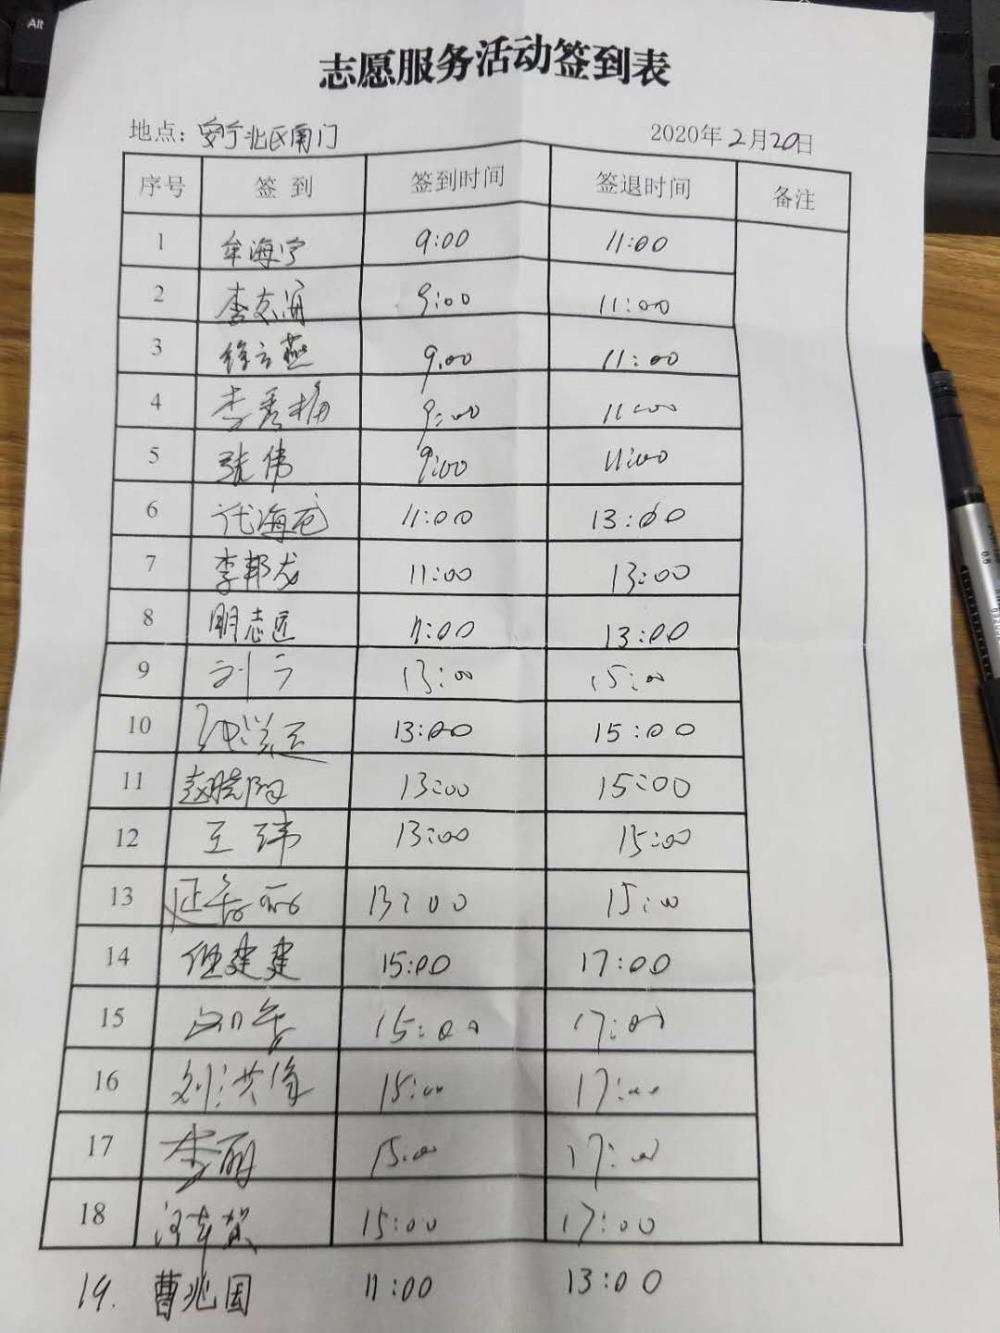 Alt
志愿服务活动签到表
地点：安宁北区南门 2020年2月20日
序号 签到 签到时间 签退时间 备注
1 牟海宁 9:00 11:00
2 李志海 9:00 11:00
3 徐立燕 9:00 11:00
4 李秀梅 9:00 11:00
5 张伟 9:00 11:00
6 代海龙 11:00 13:00
7 李邦龙 11:00 13:00
8 明志远 11:00 13:00
9 刘宁 13:00 15:00
10 13:00 15:00
11 赵晓阳 13:00 15:00
12 王玮 13:00 15:00
13 13:00 15:00
14 但建建 15:00 17:00
15 15:00 17:00
16 刘洪伟 15:00 17:00
17 李丽 15:00 17:00
18 15:00 17:00
19. 曹兆国 11:00 13:00
0.5